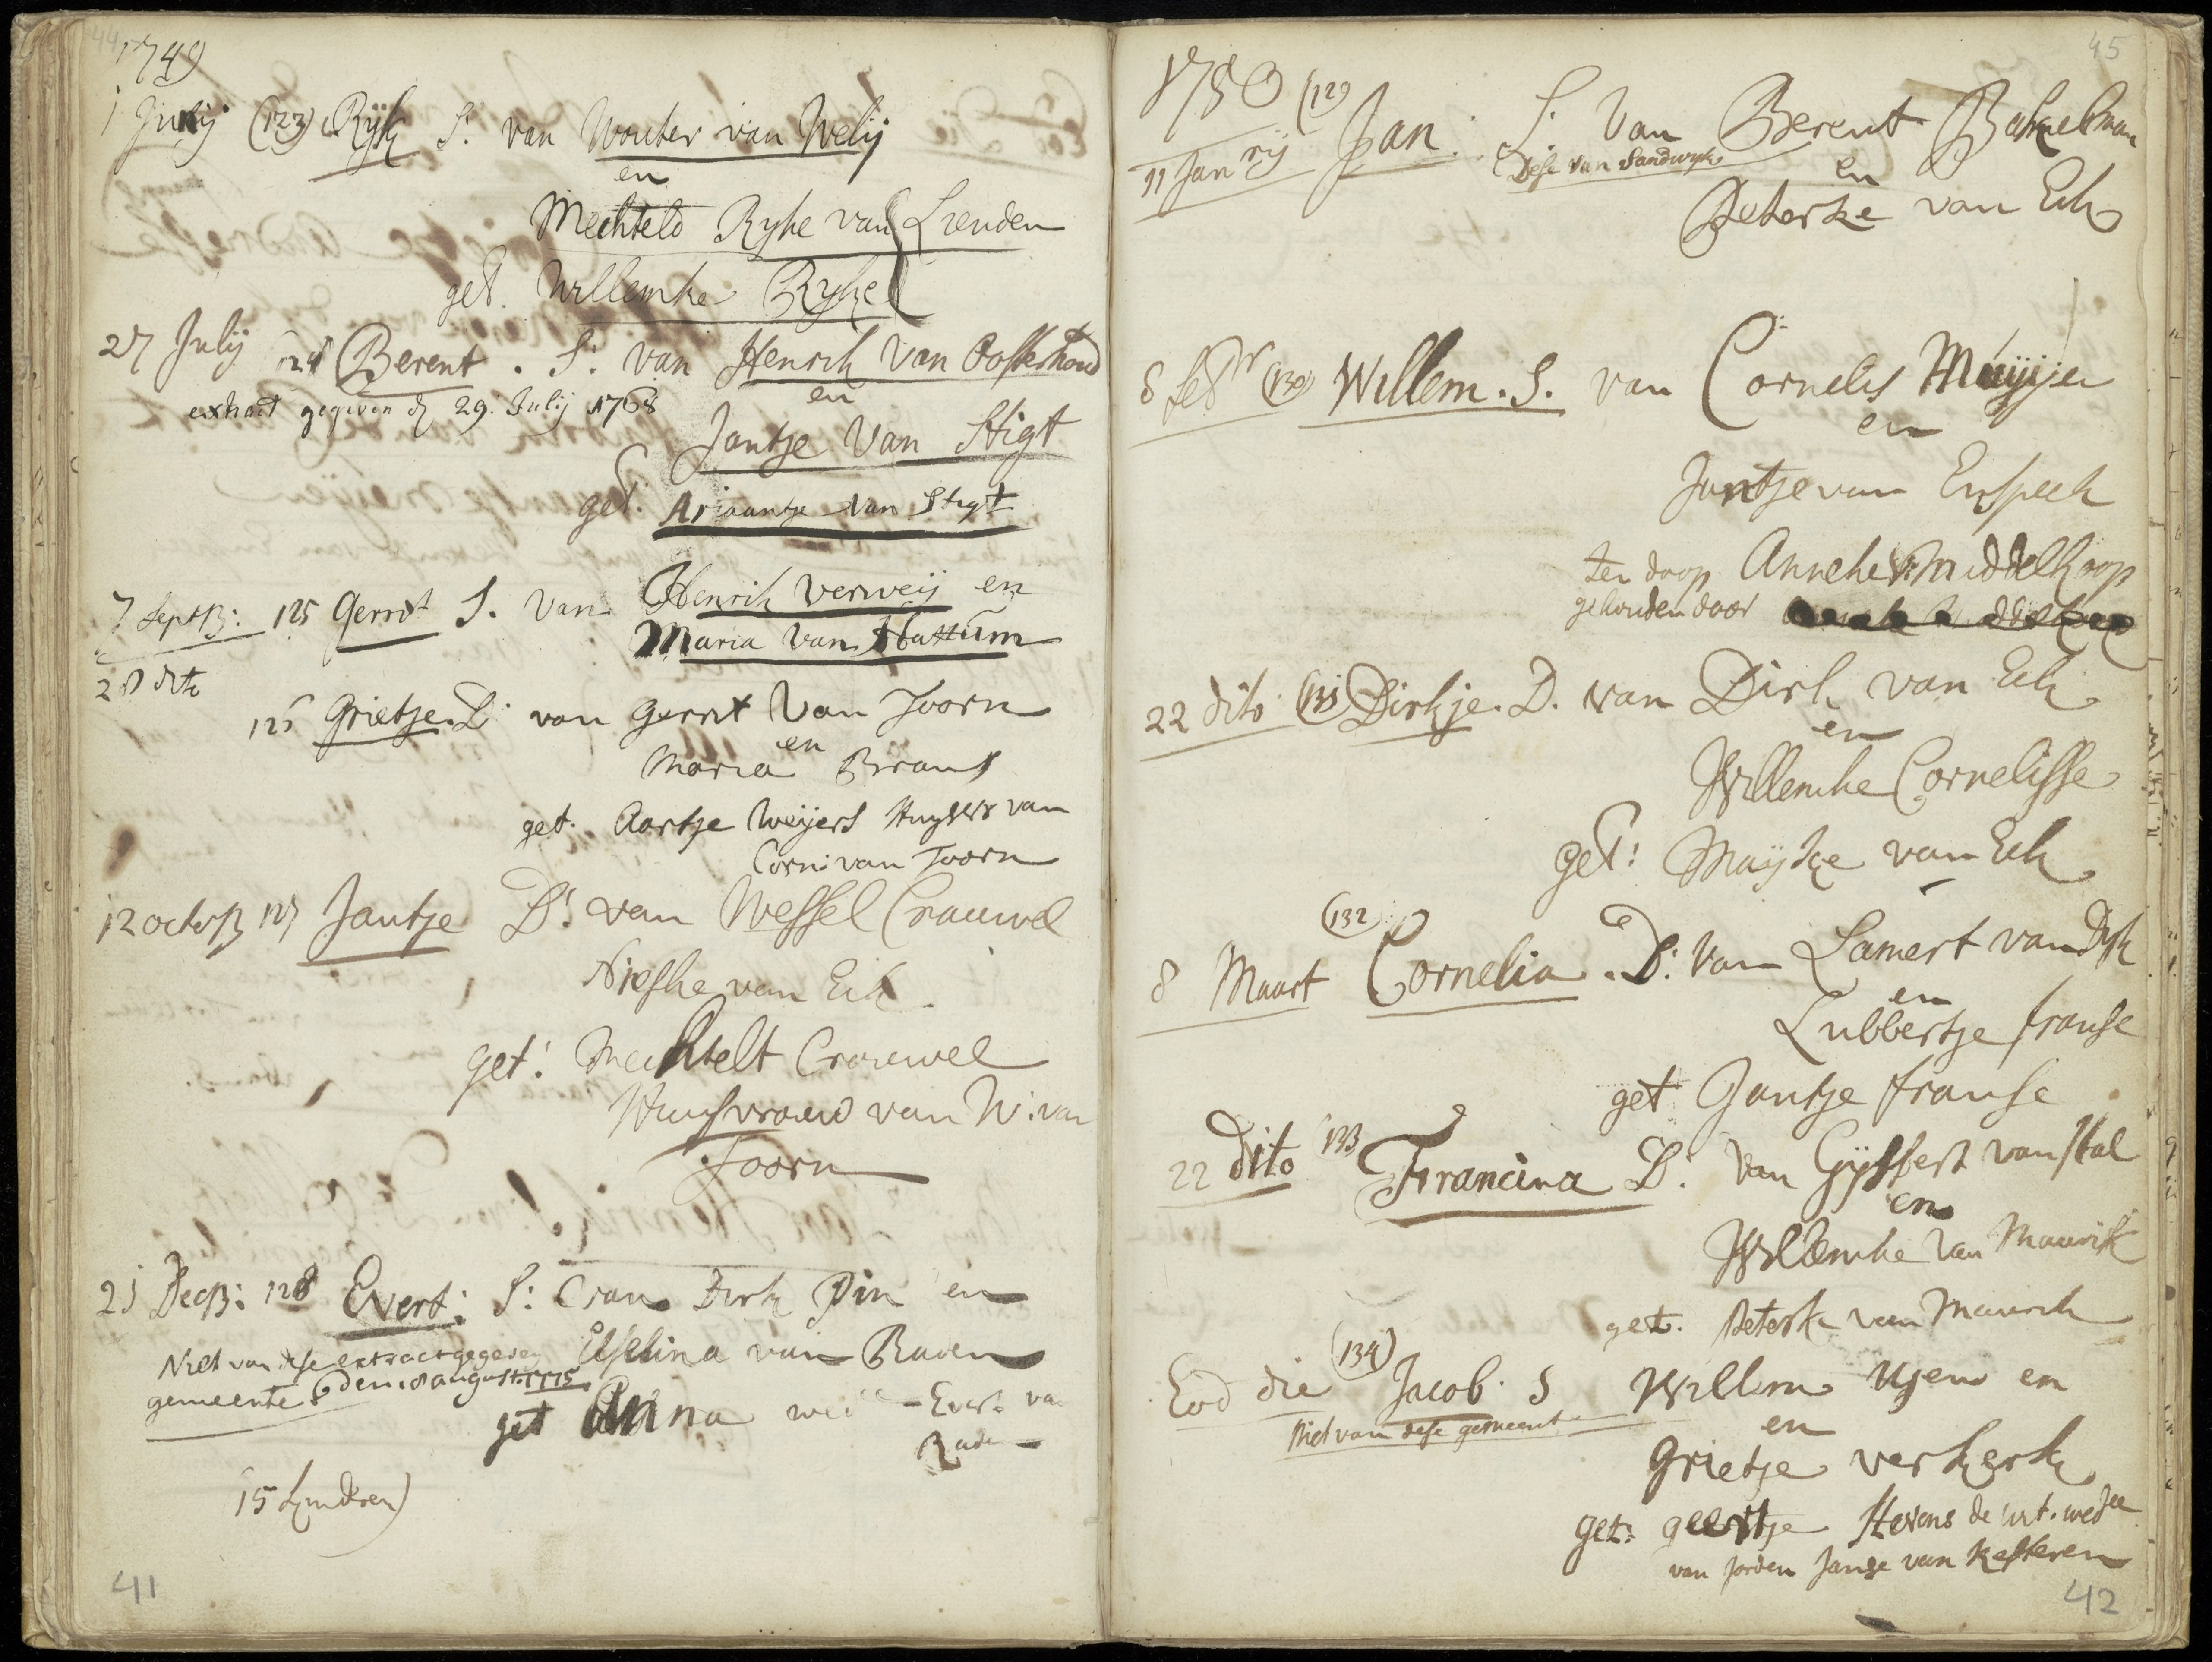 44
1749
1 July (123) Ryk S: van Wouter van Welij
en
Mechteld Ryke van Lienden
get. Willemke Ryke
27 Julij 124 Berent. S: van Henrik van Oosterhoud
extract gegeven d 29. Julij 1768
en
Jantje van Stigt
get: Ariaantje van Stigt
7 Septb: 125 Gerrit S. van Henrik verweij en
Maria van Hattum
28 dito
126 Grietje D: van Gerrit van Toorn
en
Maria Brans
get. Aartje Weijers Huysvr van
Corn: van Toorn
12 octob 127 Jantje D: van Wessel Crouwel
Nieske van Eck.
get: Mechtelt Crouwel
Huysvrouw van W: van
Toorn
21 Decb: 128 Evert: S: van Dirk Pin en
Niet van dese extract gegeven Elselina van Raven
gemeente den 18 august. 1775
get Anna wed Evert va
15 kinderen)
41
45
1750 (129
11 Janrij Jan: S. van Berent Bakelman
Dese van Sandwyk
en
Peterke van Eck
8 febr (130) Willem. S. van Cornelis Muijjer
en
Jantje van Enspeek
ten doop Anneke Middelkoop
gehouden door
22 dito (131) Dirkje. D. van Dirk van Eck
en
Willemke Cornelisse
get: Maijke van Eck
(132
8 Maart Cornelia. D: van Lamert van Dyk
en
Lubbertje franse
get Jantje franse
22 dito 133 Francina D: van Gijsbert van Stal
en
Willemke van Maurik
get. Peterke van Maurik
Eod die (134) Jacob. S Willem en
Niet van dese gemeent
en
Grietje verkerk
get: geertje Stevens de wed
van Jorden Janse van Kesteren
42